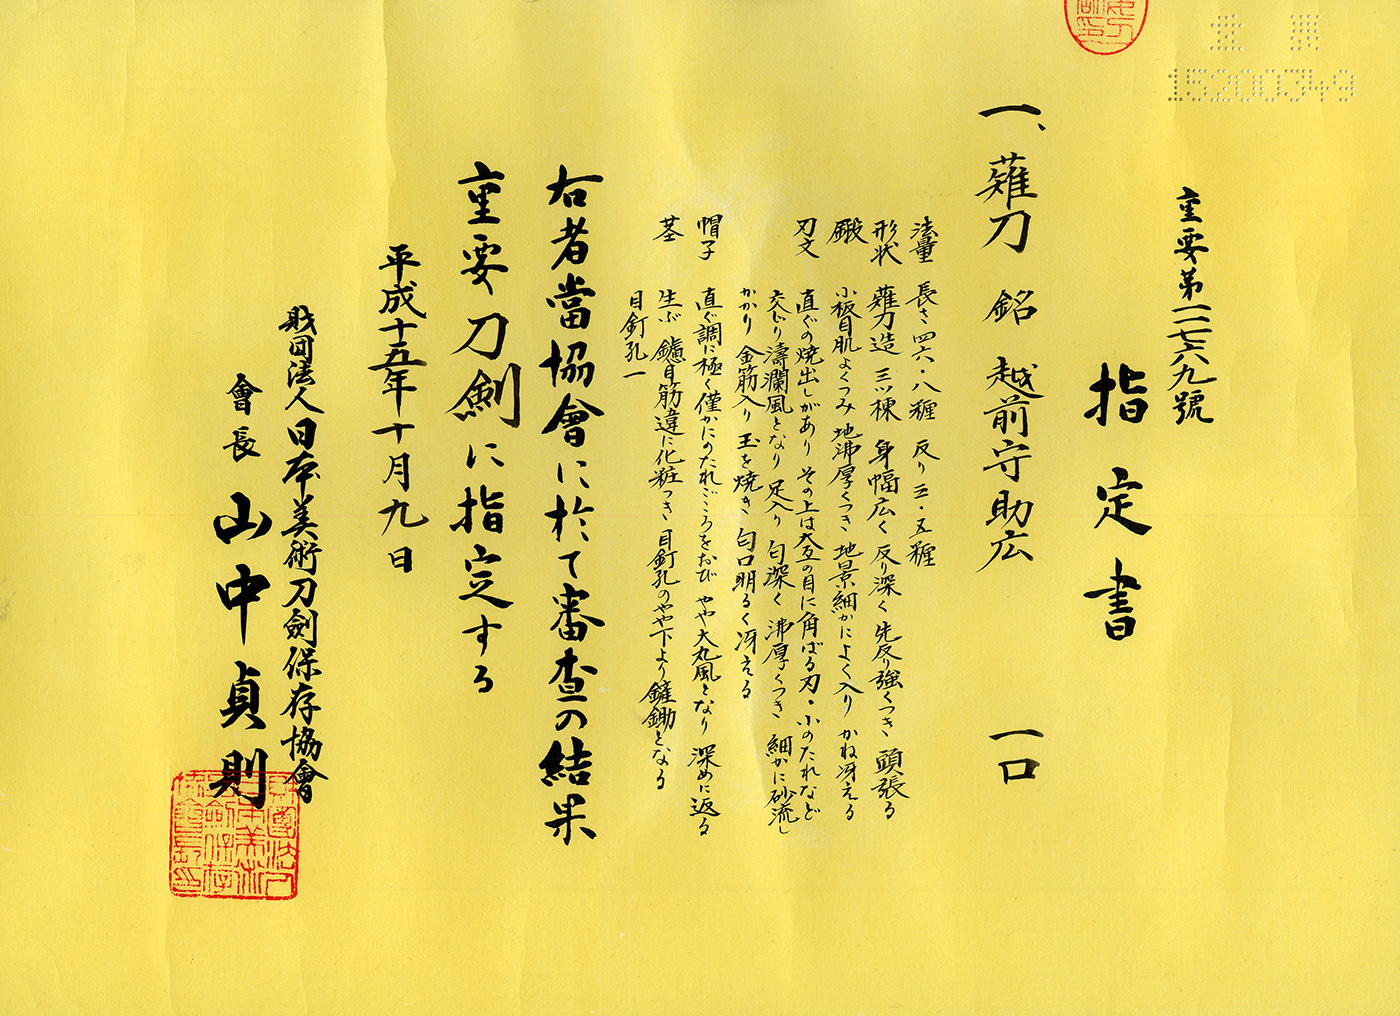 重要第一一七六九號
指定書
一、薙刀 銘 越前守助広 一口
法量 長さ四六・八糎 反り三・五糎
形状 薙刀造 三ツ棟 身幅広く 反り深く 先反り強くつき 頭張る
鍛 小板目肌よくつみ 地沸厚くつき 地景細かによく入り かね冴える
刃文 直ぐの焼出しがあり その上は大互の目に角ばる刃・小のたれなど
交じり 濤瀾風となり 足入り 匂深く 沸厚くつき 細かに砂流し
かかり 金筋入り 玉を焼き 匂口明るく冴える
帽子 直ぐ調に極く僅かにのたれごころをおび やや大丸風となり 深めに返る
茎 生ぶ 鑢目筋違に化粧つき 目釘孔のやや下より鏟鋤となる
目釘孔一
右者當協會に於て審査の結果
重要刀劍に指定する
平成十五年十月九日
財団法人日本美術刀劍保存協會
會長 山中貞則
15200349